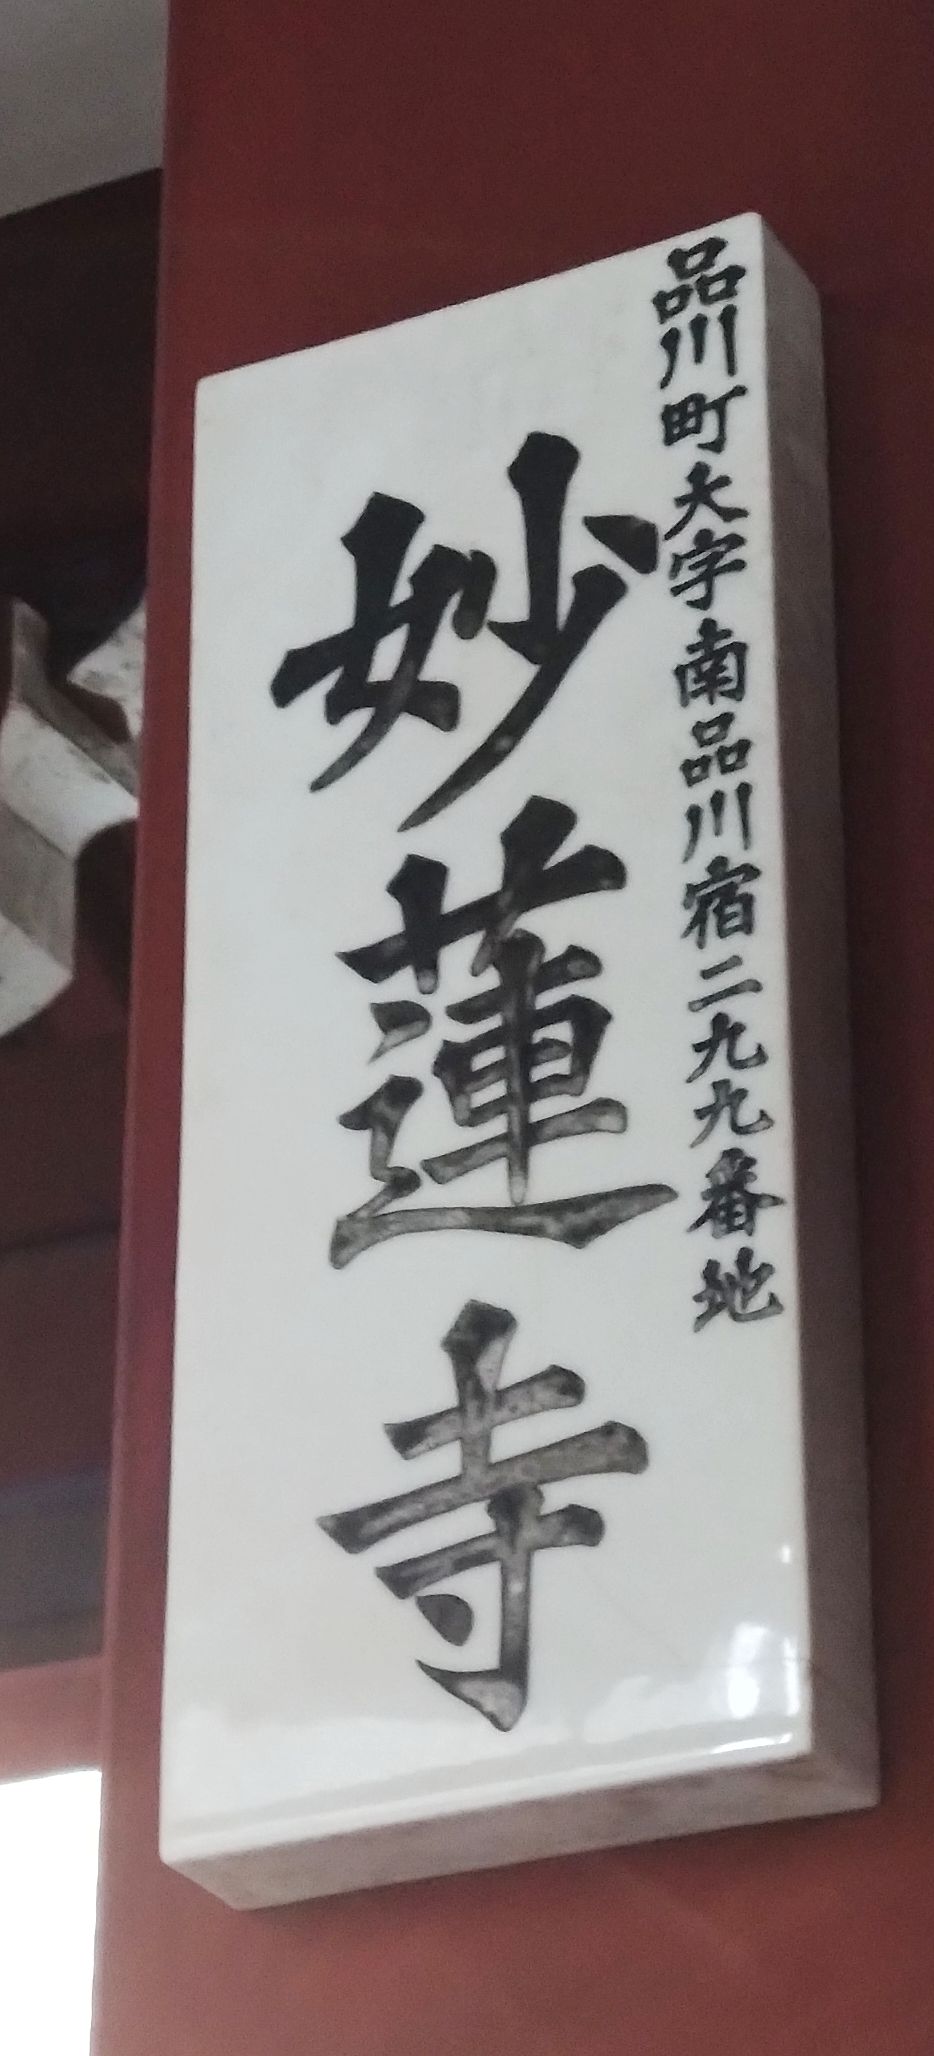 品川町大字南品川宿二九九番地
妙蓮寺